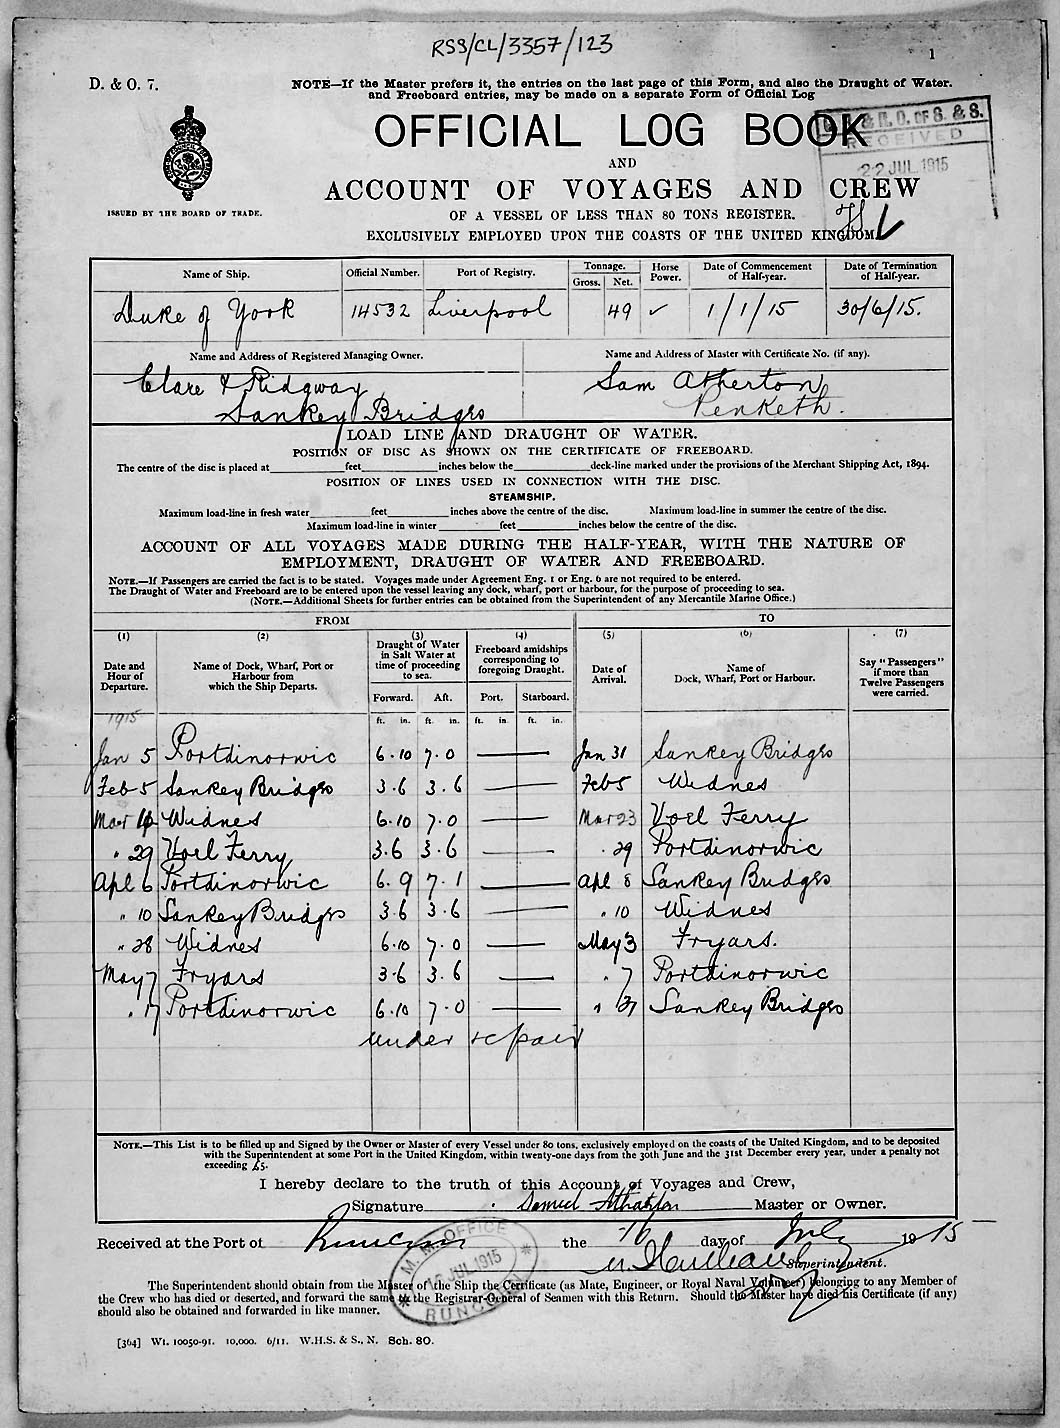 RSS/CL/3357/123
1
D. & O. 7.
NOTE—If the Master prefers it, the entries on the last page of this Form, and also the Draught of Water.
and Freeboard entries, may be made on a separate Form of Official Log
OFFICIAL LOG BOOK
& R. O. OF S. & S.
RECEIVED
22 JUL 1915
AND
ACCOUNT OF VOYAGES AND CREW
ISSUED BY THE BOARD OF TRADE.
OF A VESSEL OF LESS THAN 80 TONS REGISTER.
EXCLUSIVELY EMPLOYED UPON THE COASTS OF THE UNITED KINGDOM.
Name of Ship. Official Number. Port of Registry. Tonnage. Gross. Net. Horse Power. Date of Commencement of Half-year. Date of Termination of Half-year.
Duke of York 14532 Liverpool 49 ✓ 1/1/15 30/6/15.
Name and Address of Registered Managing Owner. Name and Address of Master with Certificate No. (if any).
Clare & Ridgway Sam Atherton
Sankey Bridges Penketh.
LOAD LINE AND DRAUGHT OF WATER.
POSITION OF DISC AS SHOWN ON THE CERTIFICATE OF FREEBOARD.
The centre of the disc is placed at feet inches below the deck-line marked under the provisions of the Merchant Shipping Act, 1894.
POSITION OF LINES USED IN CONNECTION WITH THE DISC.
STEAMSHIP.
Maximum load-line in fresh water feet inches above the centre of the disc. Maximum load-line in summer the centre of the disc.
Maximum load-line in winter feet inches below the centre of the disc.
ACCOUNT OF ALL VOYAGES MADE DURING THE HALF-YEAR, WITH THE NATURE OF
EMPLOYMENT, DRAUGHT OF WATER AND FREEBOARD.
NOTE.—If Passengers are carried the fact is to be stated. Voyages made under Agreement Eng. 1 or Eng. 6 are not required to be entered.
The Draught of Water and Freeboard are to be entered upon the vessel leaving any dock, wharf, port or harbour, for the purpose of proceeding to sea.
(NOTE.—Additional Sheets for further entries can be obtained from the Superintendent of any Mercantile Marine Office.)
FROM TO
(1) (2) (3) (4) (5) (6) (7)
Date and Hour of Departure. Name of Dock, Wharf, Port or Harbour from which the Ship Departs. Draught of Water in Salt Water at time of proceeding to sea. Freeboard amidships corresponding to foregoing Draught. Date of Arrival. Name of Dock, Wharf, Port or Harbour. Say "Passengers" if more than Twelve Passengers were carried.
Forward. Aft. Port. Starboard.
1915 ft. in. ft. in. ft. in. ft. in.
Jan 5 Portdinorwic 6.10 7.0 Jan 31 Sankey Bridges
Feb 5 Sankey Bridges 3.6 3.6 Feb 5 Widnes
Mar Widnes 6.10 7.0 Mar 23 Voel Ferry
" 29 Voel Ferry 3.6 3.6 " 29 Portdinorwic
Apl 6 Portdinorwic 6.9 7.1 Apl 8 Sankey Bridges
" 10 Sankey Bridges 3.6 3.6 " 10 Widnes
" 28 Widnes 6.10 7.0 May 3 Fryars.
May 7 Fryars 3.6 3.6 " 7 Portdinorwic
" 17 Portdinorwic 6.10 7.0 " Sankey Bridges
under repair
NOTE.—This List is to be filled up and Signed by the Owner or Master of every Vessel under 80 tons, exclusively employed on the coasts of the United Kingdom, and to be deposited
with the Superintendent at some Port in the United Kingdom, within twenty-one days from the 30th June and the 31st December every year, under a penalty not
exceeding £5.
I hereby declare to the truth of this Account of Voyages and Crew,
Signature Samuel Atherton Master or Owner.
Received at the Port of Runcorn the 16 day of July 1915
Superintendent.
M. M. OFFICE
JUL 1915
RUNCORN
The Superintendent should obtain from the Master of the Ship the Certificate (as Mate, Engineer, or Royal Naval Volunteer) belonging to any Member of
the Crew who has died or deserted, and forward the same to the Registrar-General of Seamen with this Return. Should the Master have died his Certificate (if any)
should also be obtained and forwarded in like manner.
[364] Wt. 10050-91. 10,000. 6/11. W.H.S. & S., N. Sch. 80.